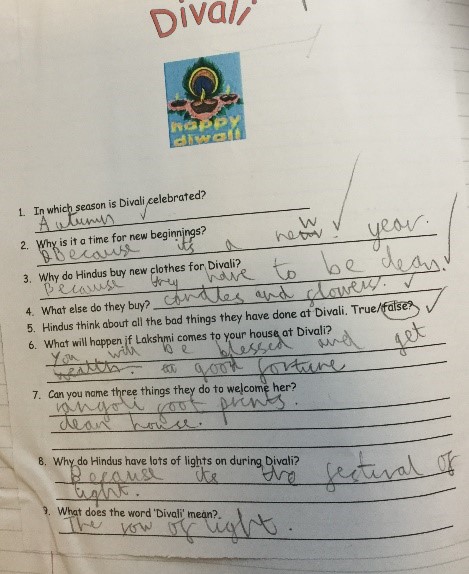 Divali
happy
diwali
1. In which season is Divali celebrated?
Autumn
2. Why is it a time for new beginnings?
Because its a new year.
3. Why do Hindus buy new clothes for Divali?
Because they have to be clean.
4. What else do they buy? candles and flowers.
5. Hindus think about all the bad things they have done at Divali. True/false?
6. What will happen if Lakshmi comes to your house at Divali?
You will be blessed and get
wealth. good fortune
7. Can you name three things they do to welcome her?
rangoli foot prints.
clean house.
8. Why do Hindus have lots of lights on during Divali?
Because its the festival of
light.
9. What does the word 'Divali' mean?
The row of light.